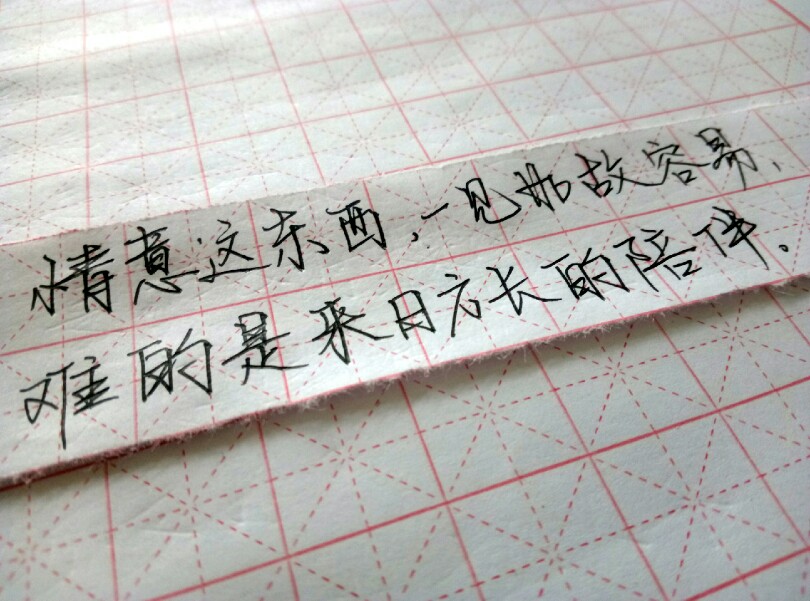 情意这东西,一见如故容易,
难的是来日方长的陪伴.